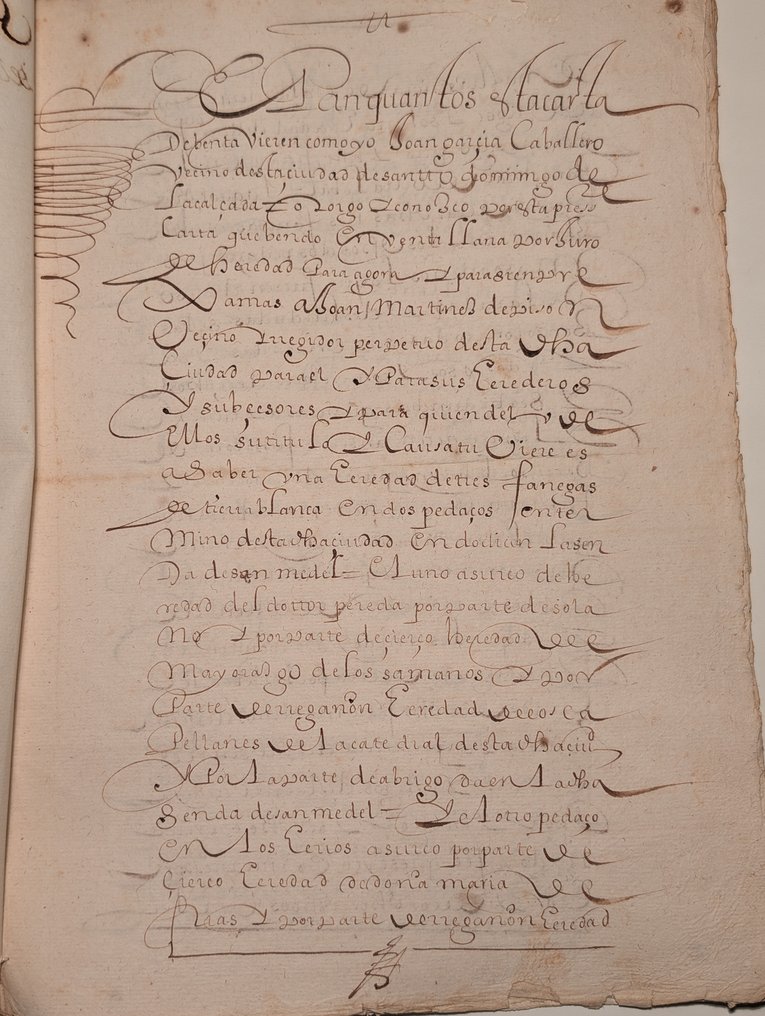 Sepan quantos esta carta
De benta Vieren como yo Joan garçia Caballero
Vecino desta ciudad de santto domingo de
La calçada otorgo e conozco por esta pres.te
Carta que bendo En venta llana por Juro
de heredad Para agora e para sienpre
Jamas a Joan Martinez de pison
Veçino e rregidor perpetuo desta dha
Çiudad para el y Para sus herederos
y subçesores e para quien del y de
Ellos su titulo e Causa tu Viere es
a Saber vna heredad de tres fanegas
de tierra blanca en dos pedaços en ter
Mino desta dha ciudad en do diçen La sen
Da de san medel = El uno a surco de he
redad del dottor pereda por parte de sola
no e por parte de çierço heredad del
Mayoradgo de los samanos e por
Parte de rregañon heredad de los ca
Pellanes de la catedral desta dha çiud
y Por la parte de abrigo da en la dha
senda de san medel = y el otro pedaço
en los a surco por parte de
çierço heredad de doña maria de
frias e por parte de rregañon heredad